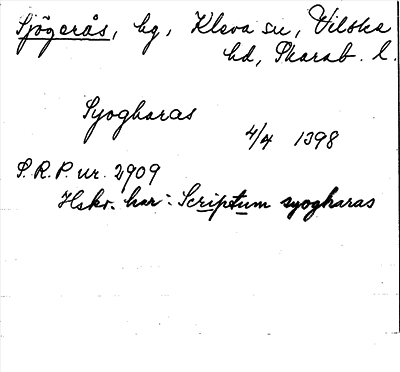 Sjögerås, hg, Kleva sn, Vilske
hd, Skarab. l.
Syogharas
4/4 1398
S.R.P. nr. 2909
Hskr. har: Scriptum syogharas